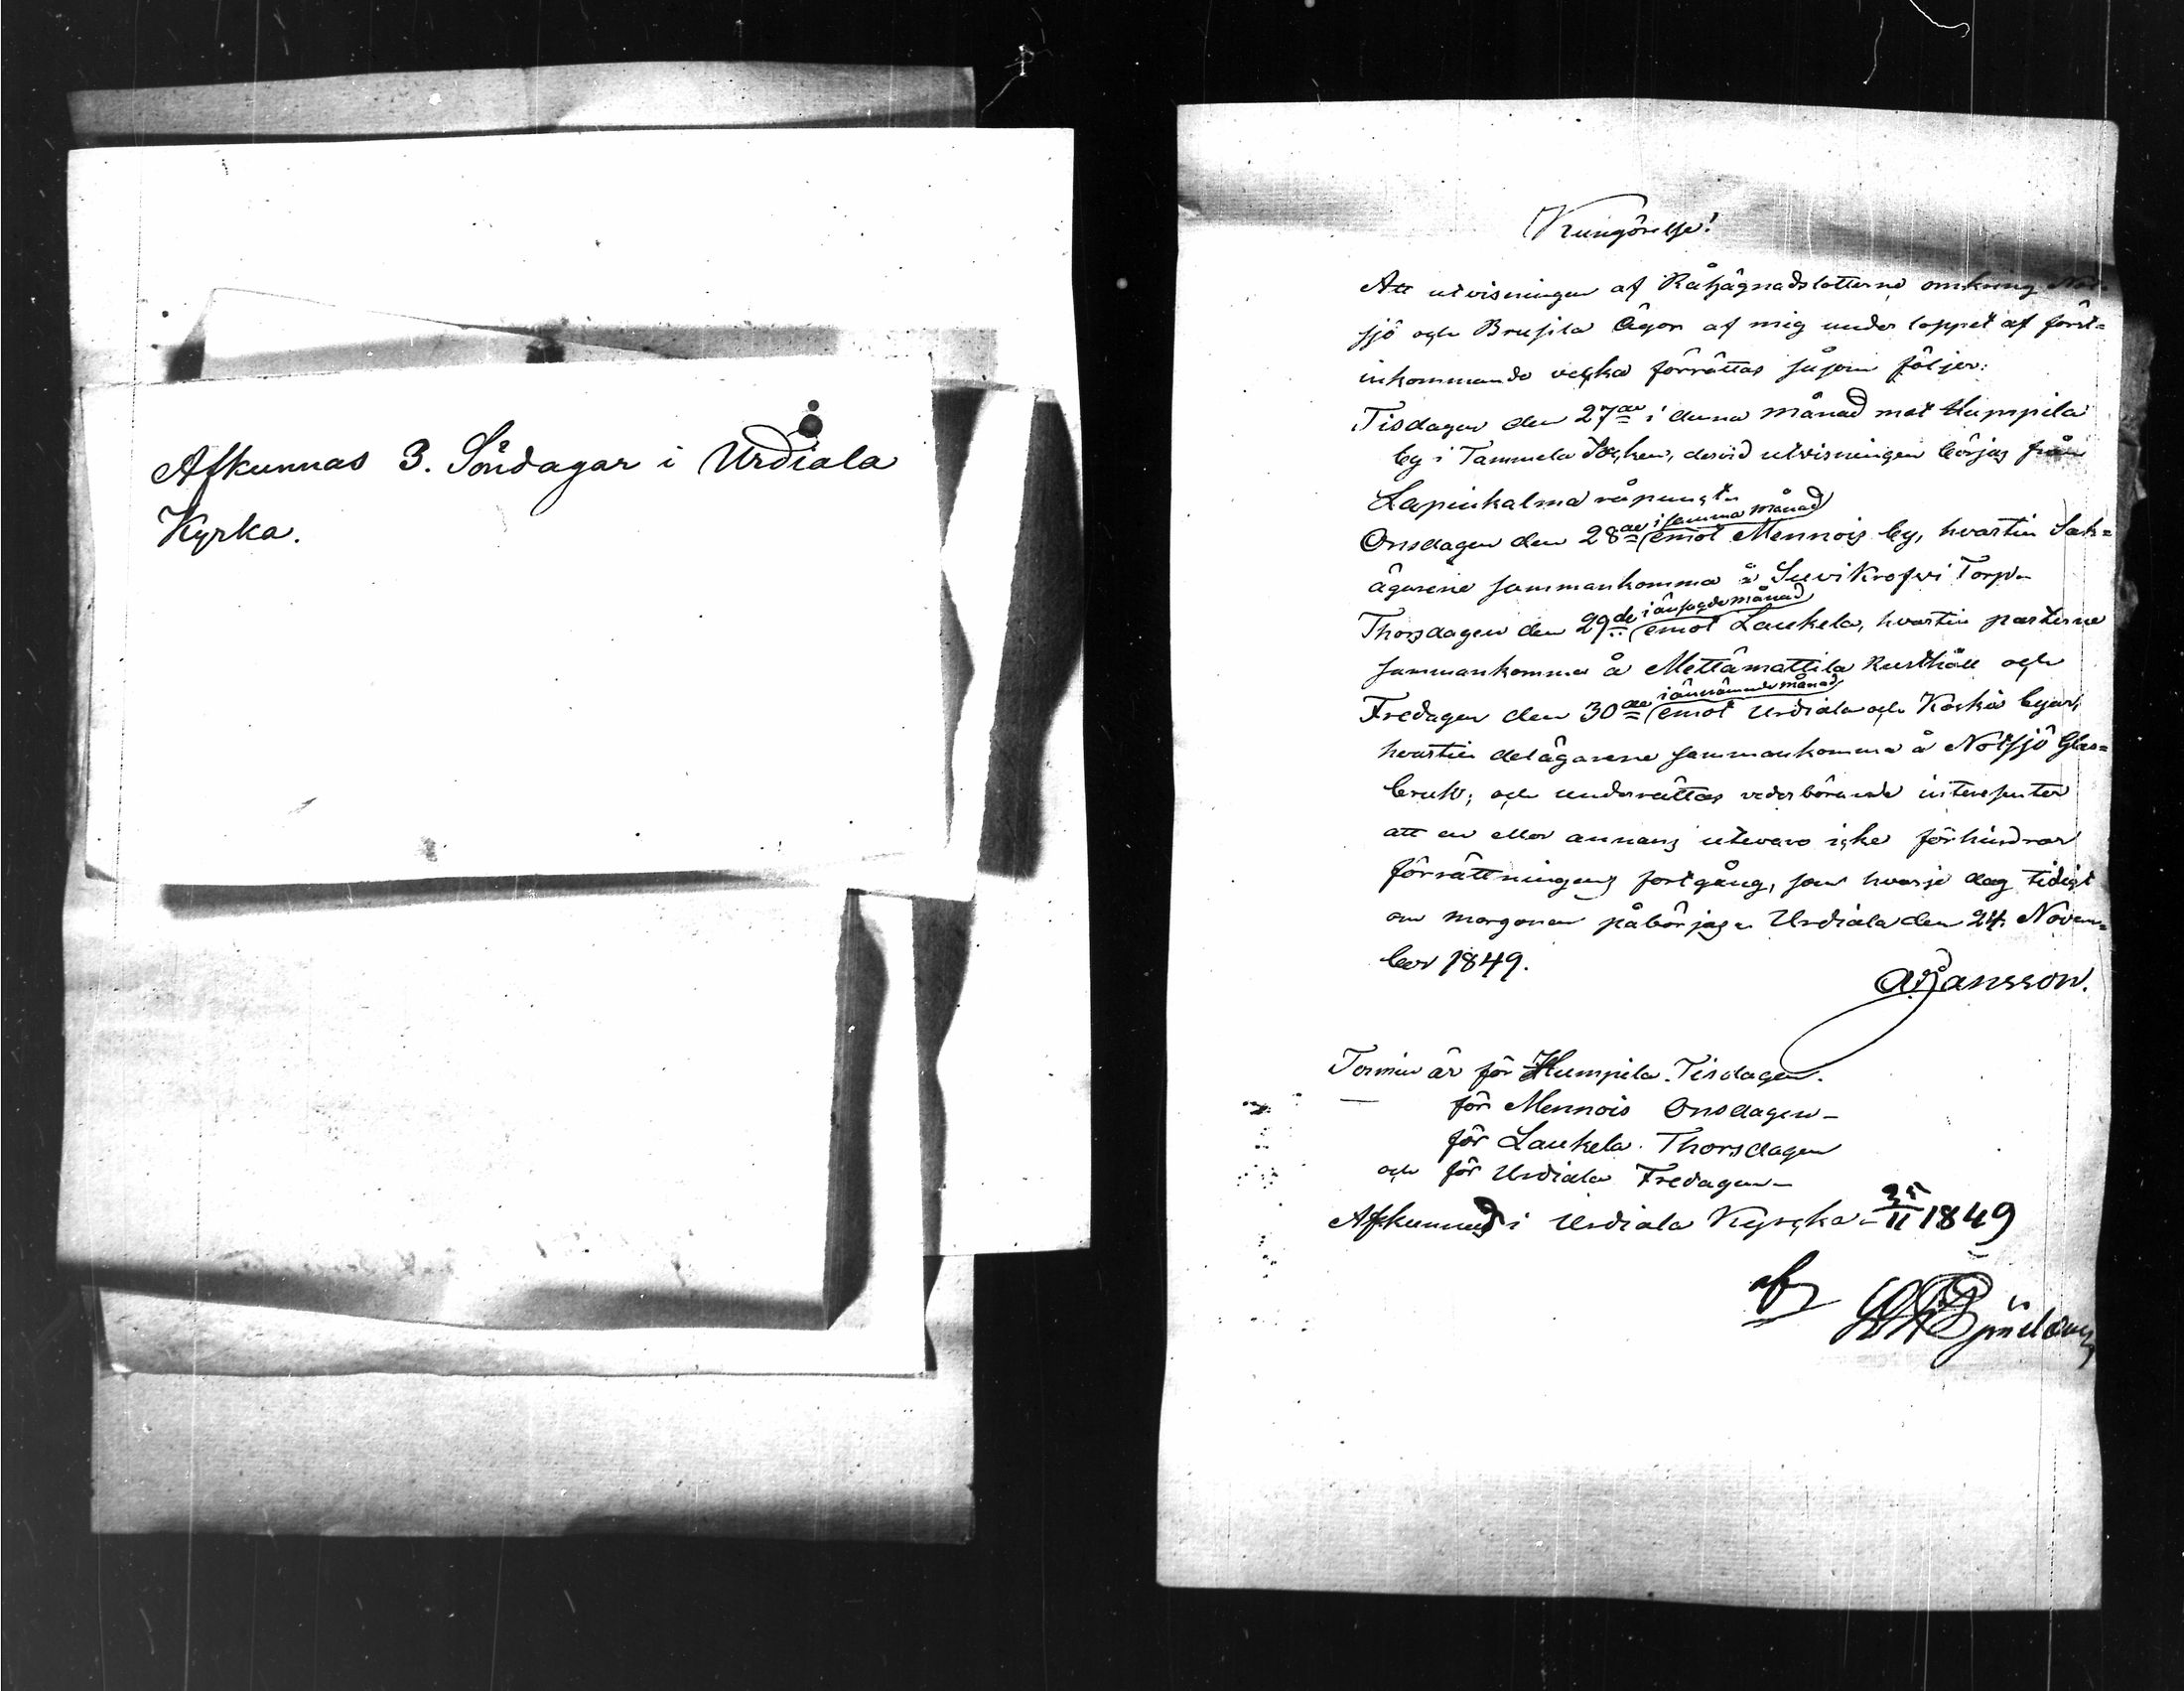 Afkunnas 3. Söndagar i Urdiala
Kyrka.
Kungörelse!
Att utvisningen af Råhägnadslotterne omkring Not-
sjö och Brusila Ägor af mig under loppet af först-
inkommande vecka förrättas såsom följer:
Tisdagen den 27de i denna månad mot Humpila
by i Tammela Socken, dervid utvisningen börjas från
Lapinkalma råpunct.
i samma månad
Onsdagen den 28de emot Mennois by, hvartin Sak-
ägarene sammankomma å Torp.
i änsagde månad
Thorsdagen den 29de emot Laukela, hvartin parterne
sammankomma å Mettämattila Rusthåll och
i ännämnde månad
Fredagen den 30de emot Urdiala och Koskis byar,
hvartin delägarene sammankomma å Notsjö Glas-
bruk; och underrättas vederbörande interesenter
att en eller annans utevaro icke förhindrar
förrättningens fortgång, som hvarje dag tidigt
om morgonen påbörjas. Urdiala den 24 Novem-
ber 1849.
Jansson.
Termin är för Humpila. Tisdagen.
för Mennois Onsdagen-
för Laukela. Thorsdagen
och för Urdiala Fredagen-
Afkunnad i Urdiala Kyrcka - 25/11 1849
af